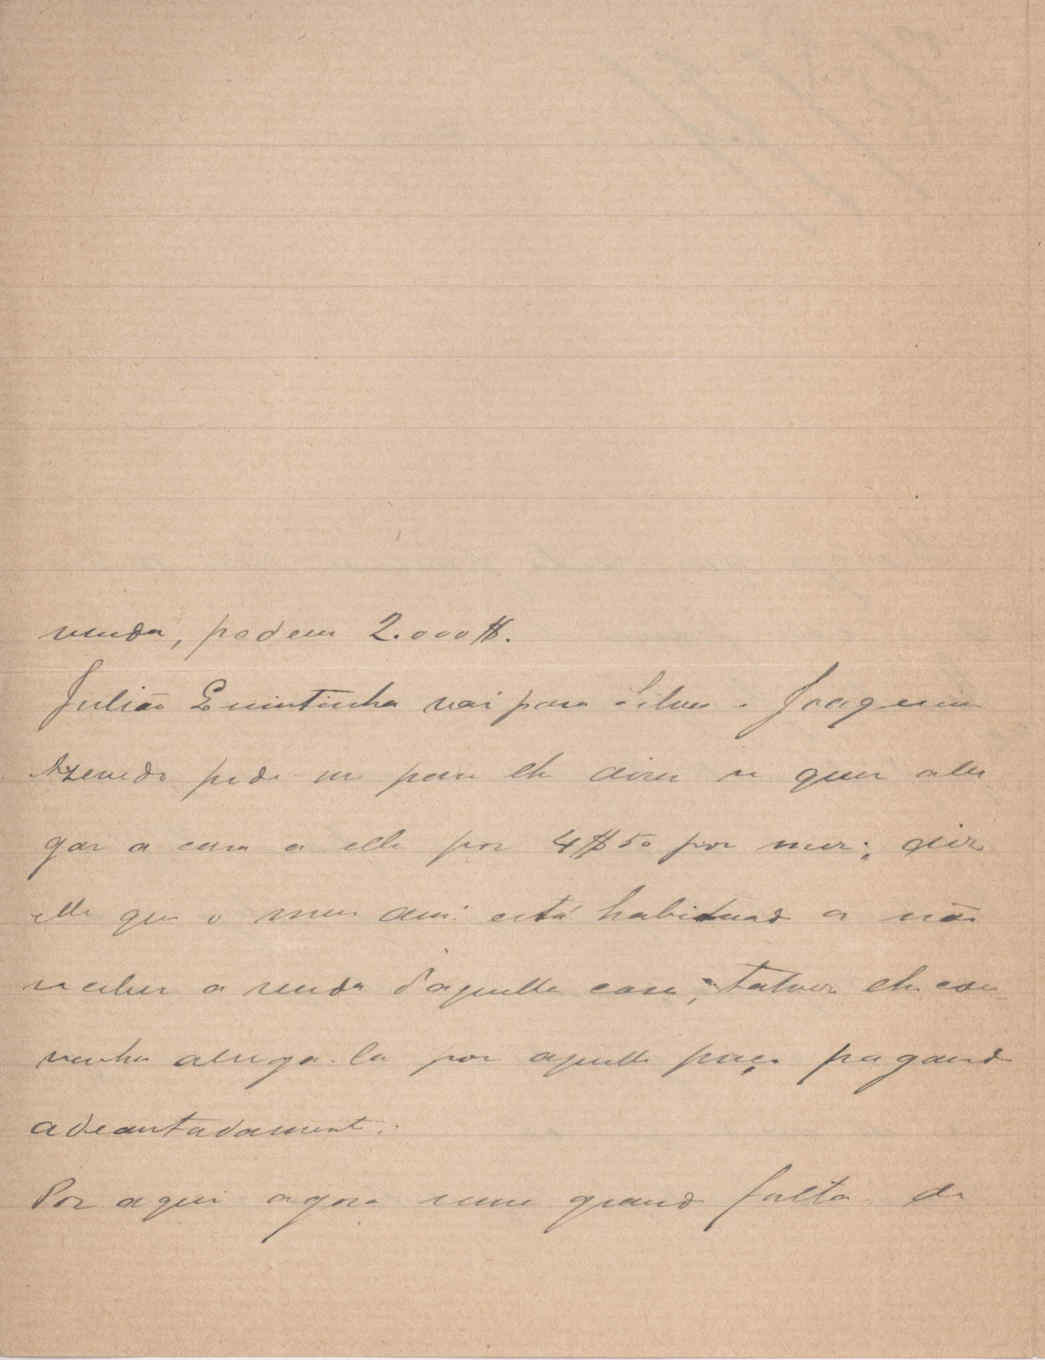 venda, podem 2.000$.
Julião Quintinha vai para Silves. Joaquim
Azevedo pede me para lhe dizer se quer alu
gar a casa a elle por 4$50 por mez; diz
elle que o meu ami. está habituado a não
receber a renda d'aquella casa; talvez lhe con
venha aluga-la por aquelle preço pagando
adeantadamente.
Por aqui agora uma grande falta de